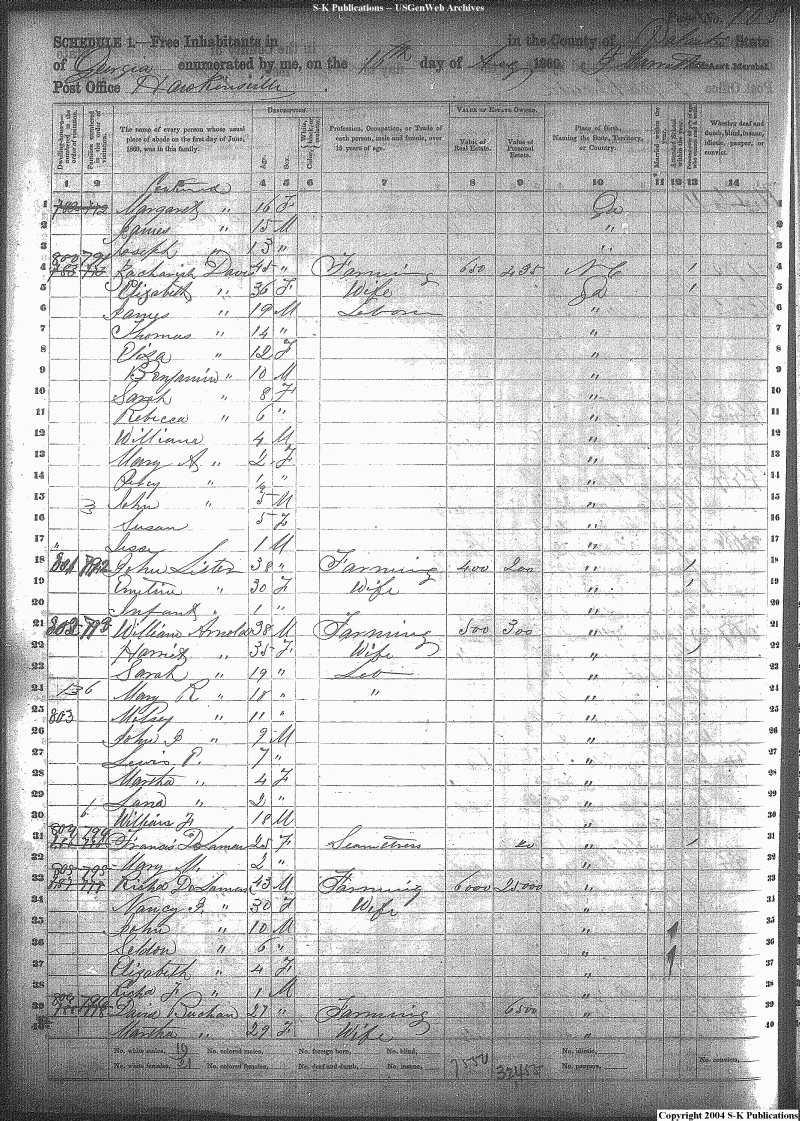 S-K Publications -- USGenWeb Archives
Page No. 103
SCHEDULE 1.—Free Inhabitants in in the County of Pulaski State
of Georgia enumerated by me, on the 16th day of Aug 1860. Ass't Marshal.
Post Office Hawkinsville
Dwelling-houses—numbered in the order of visitation. Families numbered in the order of visitation. The name of every person whose usual place of abode on the first day of June, 1860, was in this family. DESCRIPTION. Age. Sex. Color, White, black, or mulatto. Profession, Occupation, or Trade of each person, male and female, over 15 years of age. VALUE OF ESTATE OWNED. Value of Real Estate. Value of Personal Estate. Place of Birth, Naming the State, Territory, or Country. Married within the year. Attended School within the year. Persons over 20 y'rs of age who cannot read & write. Whether deaf and dumb, blind, insane, idiotic, pauper, or convict.
1 2 3 4 5 6 7 8 9 10 11 12 13 14
1 Margaret " 16 F Ga 1
2 James " 15 M " 2
3 Joseph " 13 " " 3
4 800 791 Zachariah Davis 45 " Farming 650 495 N C 1 4
5 Elizabeth " 36 F Wife Ga 1 5
6 James " 19 M " 6
7 Thomas " 14 " " 7
8 Eliza " 12 F " 8
9 Benjamin " 10 M " 9
10 Sarah " 8 F " 10
11 Rebecca " 6 " " 11
12 William 4 M " 12
13 Mary A " 2 F " 13
14 " 1/2 " " 14
15 3 John " 5 M " 15
16 Susan 5 F " 16
17 " Jesse 1 M " 17
18 801 792 John Lister 38 " Farming 400 200 " 1 18
19 " 30 F Wife " 1 19
20 Infant " 1 " " 20
21 802 793 William Arnold 38 M Farming 500 300 " 21
22 Harriet " 35 F Wife " 1 22
23 Sarah " 19 " " 23
24 13 6 Mary R " 18 " " " 24
25 803 " 11 " " 25
26 John J " 9 M " 26
27 Lewis P. 7 " " 27
28 Martha " 4 F " 28
29 " 2 " " 29
30 6 William F 18 M " 30
31 804 794 Francis DeLamar 25 F Seamstress " 1 31
32 Mary M. 2 " " 32
33 805 795 Richd DeLamar 43 M Farming 6000 25000 " 33
34 Nancy J. " 30 F Wife " 34
35 John " 10 M " 1 35
36 Seldon " 6 " " 1 36
37 Elizabeth " 4 F " 37
38 Richd F " 1 M " 38
39 796 David Buchan 27 " Farming 6500 " 39
40 Martha " 29 F Wife " 40
No. white males, 19 No. colored males, No. foreign born, No. blind, 7550 32455 No. idiotic, No. convicts,
No. white females, 21 No. colored females, No. deaf and dumb, No. insane, No. paupers,
Copyright 2004 S-K Publications